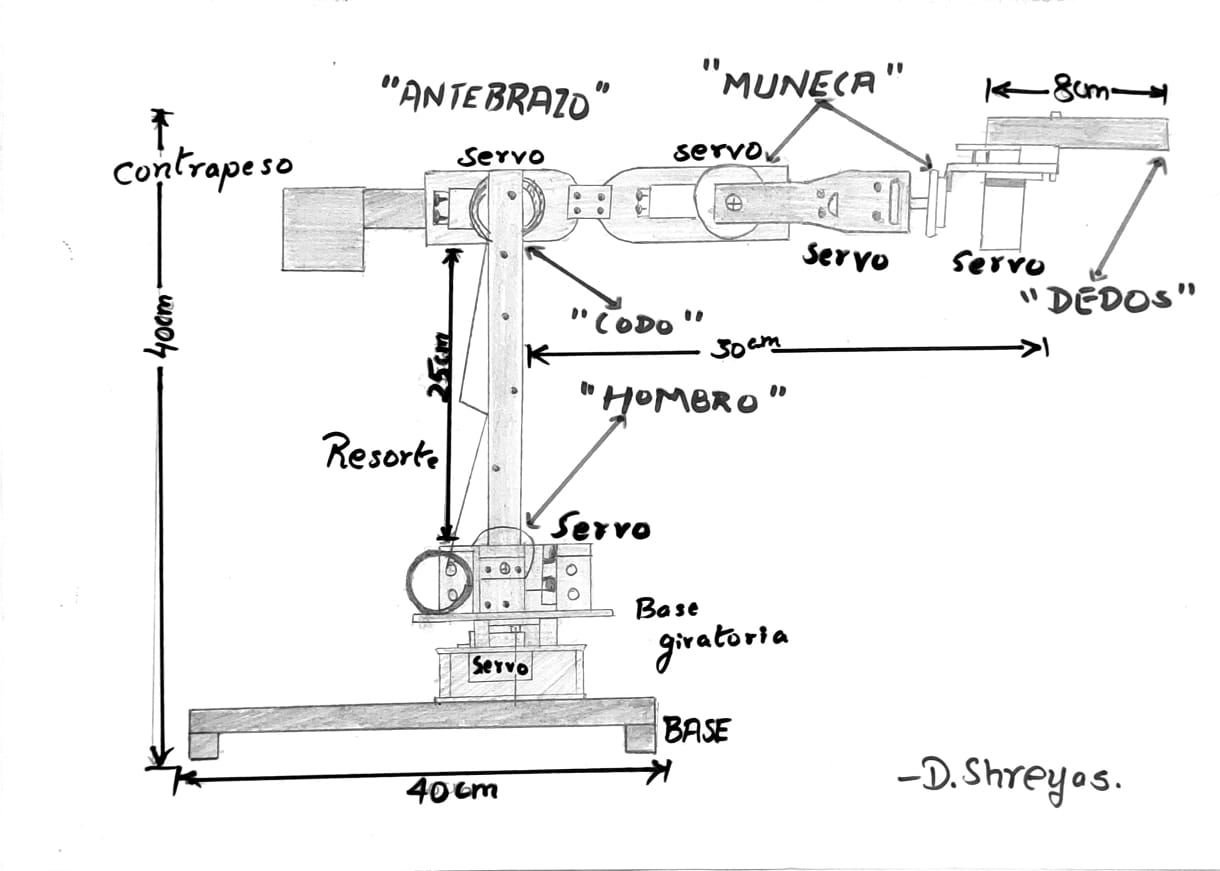 "ANTEBRAZO"
"MUNECA"
8cm
Contrapeso
Servo
Servo
Servo
Servo
"DEDOS"
40cm
25cm
"CODO"
30cm
"HOMBRO"
Resorte
Servo
Base
giratoria
Servo
BASE
40cm
-D.Shreyas.